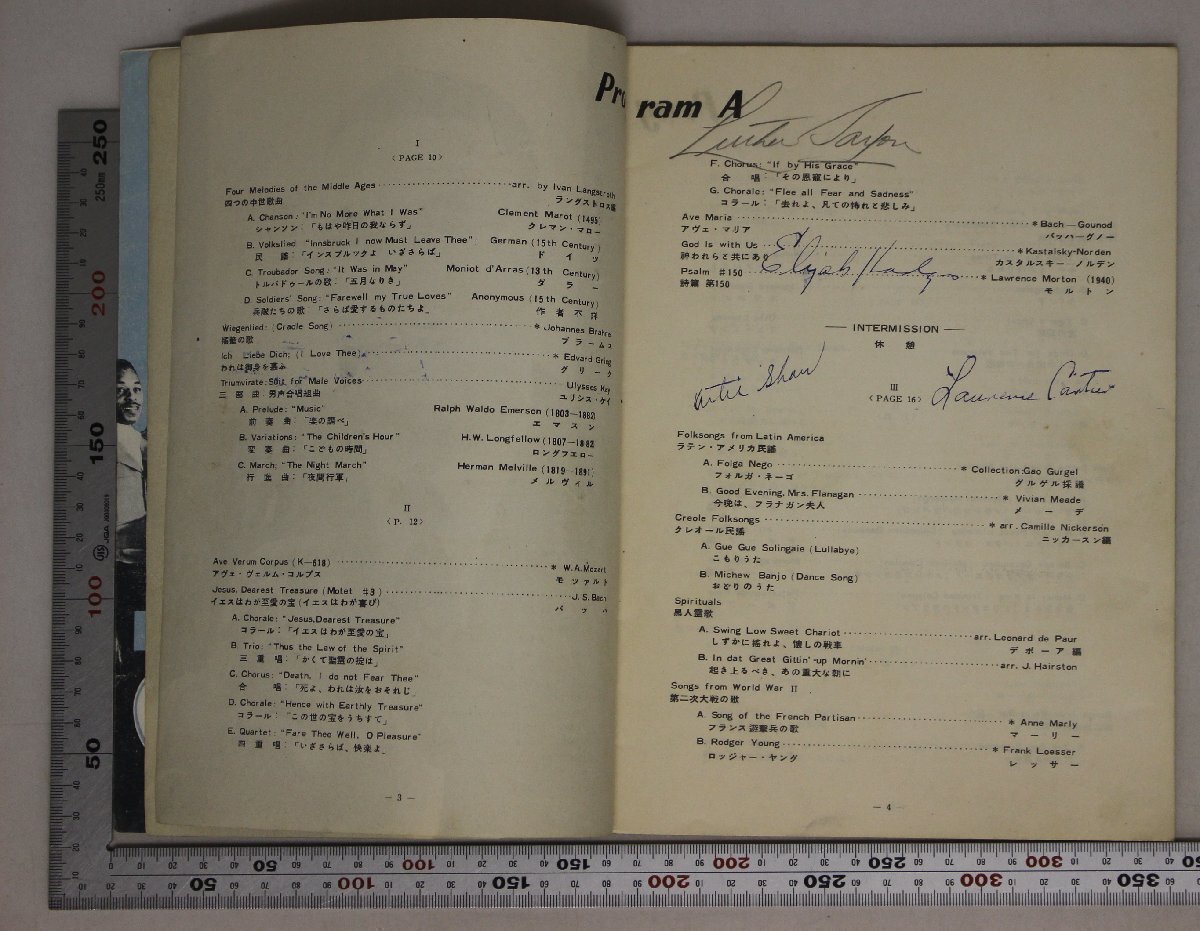 Program A
I
〈PAGE 10〉
Four Melodies of the Middle Ages arr. by Ivan Langstroth
四つの中世歌曲 ラングストロス編
A. Chanson: "I'm No More What I Was" Clement Marot (1495)
シャンソン:「もはや昨日の我ならず」 クレマン・マロー
B. Volkslied: "Innsbruck I now Must Leave Thee" German (15th Century)
民 謡:「インスブルックよ いざさらば」 ド イ ツ
C. Troubador Song: "It Was in May" Moniot d'Arras (13th Century)
トルバドゥールの歌:「五月なりき」 ダ ラ ー
D. Soldiers' Song: "Farewell my True Loves" Anonymous (15th Century)
兵隊たちの歌 「さらば愛するものたちよ」 作 者 不 詳
Wiegenlied: (Cradle Song) * Johannes Brahms
揺籃の歌 ブ ラ ー ム ス
Ich Liebe Dich: (I Love Thee) * Edvard Grieg
われは御身を慕ふ グ リ ー ク
Triumvirate: Suit for Male Voices Ulysses Kay
三 部 曲:男声合唱組曲 ユリシス・ケイ
A. Prelude: "Music" Ralph Waldo Emerson (1803—1882)
前 奏 曲:「楽の調べ」 エ マ ス ン
B. Variations: "The Children's Hour" H.W. Longfellow (1807—1882
変 奏 曲:「こどもの時間」 ロングフエロー
C. March: "The Night March" Herman Melville (1819—1891)
行 進 曲:「夜間行軍」 メ ル ヴ ィ ル
II
〈P. 12〉
Ave Verum Corpus (K—618) * W.A.Mozart
アヴェ・ヴェルム・コルプス モ ツ ァ ル ト
Jesus, Dearest Treasure (Motet #3) J.S. Bach
イエスはわが至愛の宝 (イエスはわが喜び) バ ッ ハ
A. Chorale: "Jesus, Dearest Treasure"
コラール:「イエスはわが至愛の宝」
B. Trio: "Thus the Law of the Spirit"
三 重 唱:「かくて聖霊の掟は」
C. Chorus: "Death, I do not Fear Thee"
合 唱:「死よ、われは汝をおそれじ」
D. Chorale: "Hence with Earthly Treasure"
コラール:「この世の宝をうちすて」
E. Quartet: "Fare Thee Well, O Pleasure"
四 重 唱:「いざさらば、快楽よ」
— 3 —
Luther Saxon
F. Chorus: "If by His Grace"
合 唱:「その恩寵により」
G. Chorale: "Flee all Fear and Sadness"
コラール:「去れよ、凡ての怖れと悲しみ」
Ave Maria * Bach—Gounod
アヴェ・マリア バッハーグノー
God Is with Us * Kastalsky-Norden
神われらと共にあり カスタルスキー ノルデン
Elijah Hodges
Psalm #150 * Lawrence Morton (1940)
詩篇 第150 モ ル ト ン
— INTERMISSION —
休 憩
Artie Shaw
III
〈PAGE 16〉
Laurence
Folksongs from Latin America
ラテン・アメリカ民謡
A. Folga Nego * Collection:Gao Gurgel
フォルガ・ネーゴ グルゲル採譜
B. Good Evening, Mrs. Flanagan * Vivian Meade
今晩は、フラナガン夫人 メ ー デ
Creole Folksongs * arr. Camille Nickerson
クレオール民謡 ニッカースン編
A. Gue Gue Solingaie (Lullabye)
こもりうた
B. Michew Banjo (Dance Song)
おどりのうた
Spirituals
黒人霊歌
A. Swing Low Sweet Chariot arr. Leonard de Paur
しずかに揺れよ、懐しの戦車 デ ポ ー ア 編
B. In dat Great Gittin'-up Mornin' arr. J. Hairston
起き上るべき、あの重大な朝に
Songs from World War II
第二次大戦の歌
A. Song of the French Partisan * Anne Marly
フランス遊撃兵の歌 マ ー リ ー
B. Rodger Young * Frank Loesser
ロッジャー・ヤング レ ッ サ ー
— 4 —
250
250mm
200
150
100
JIS
JQA
50
50 100 150 200 250 300 350
50 100 150 200 250 300 350